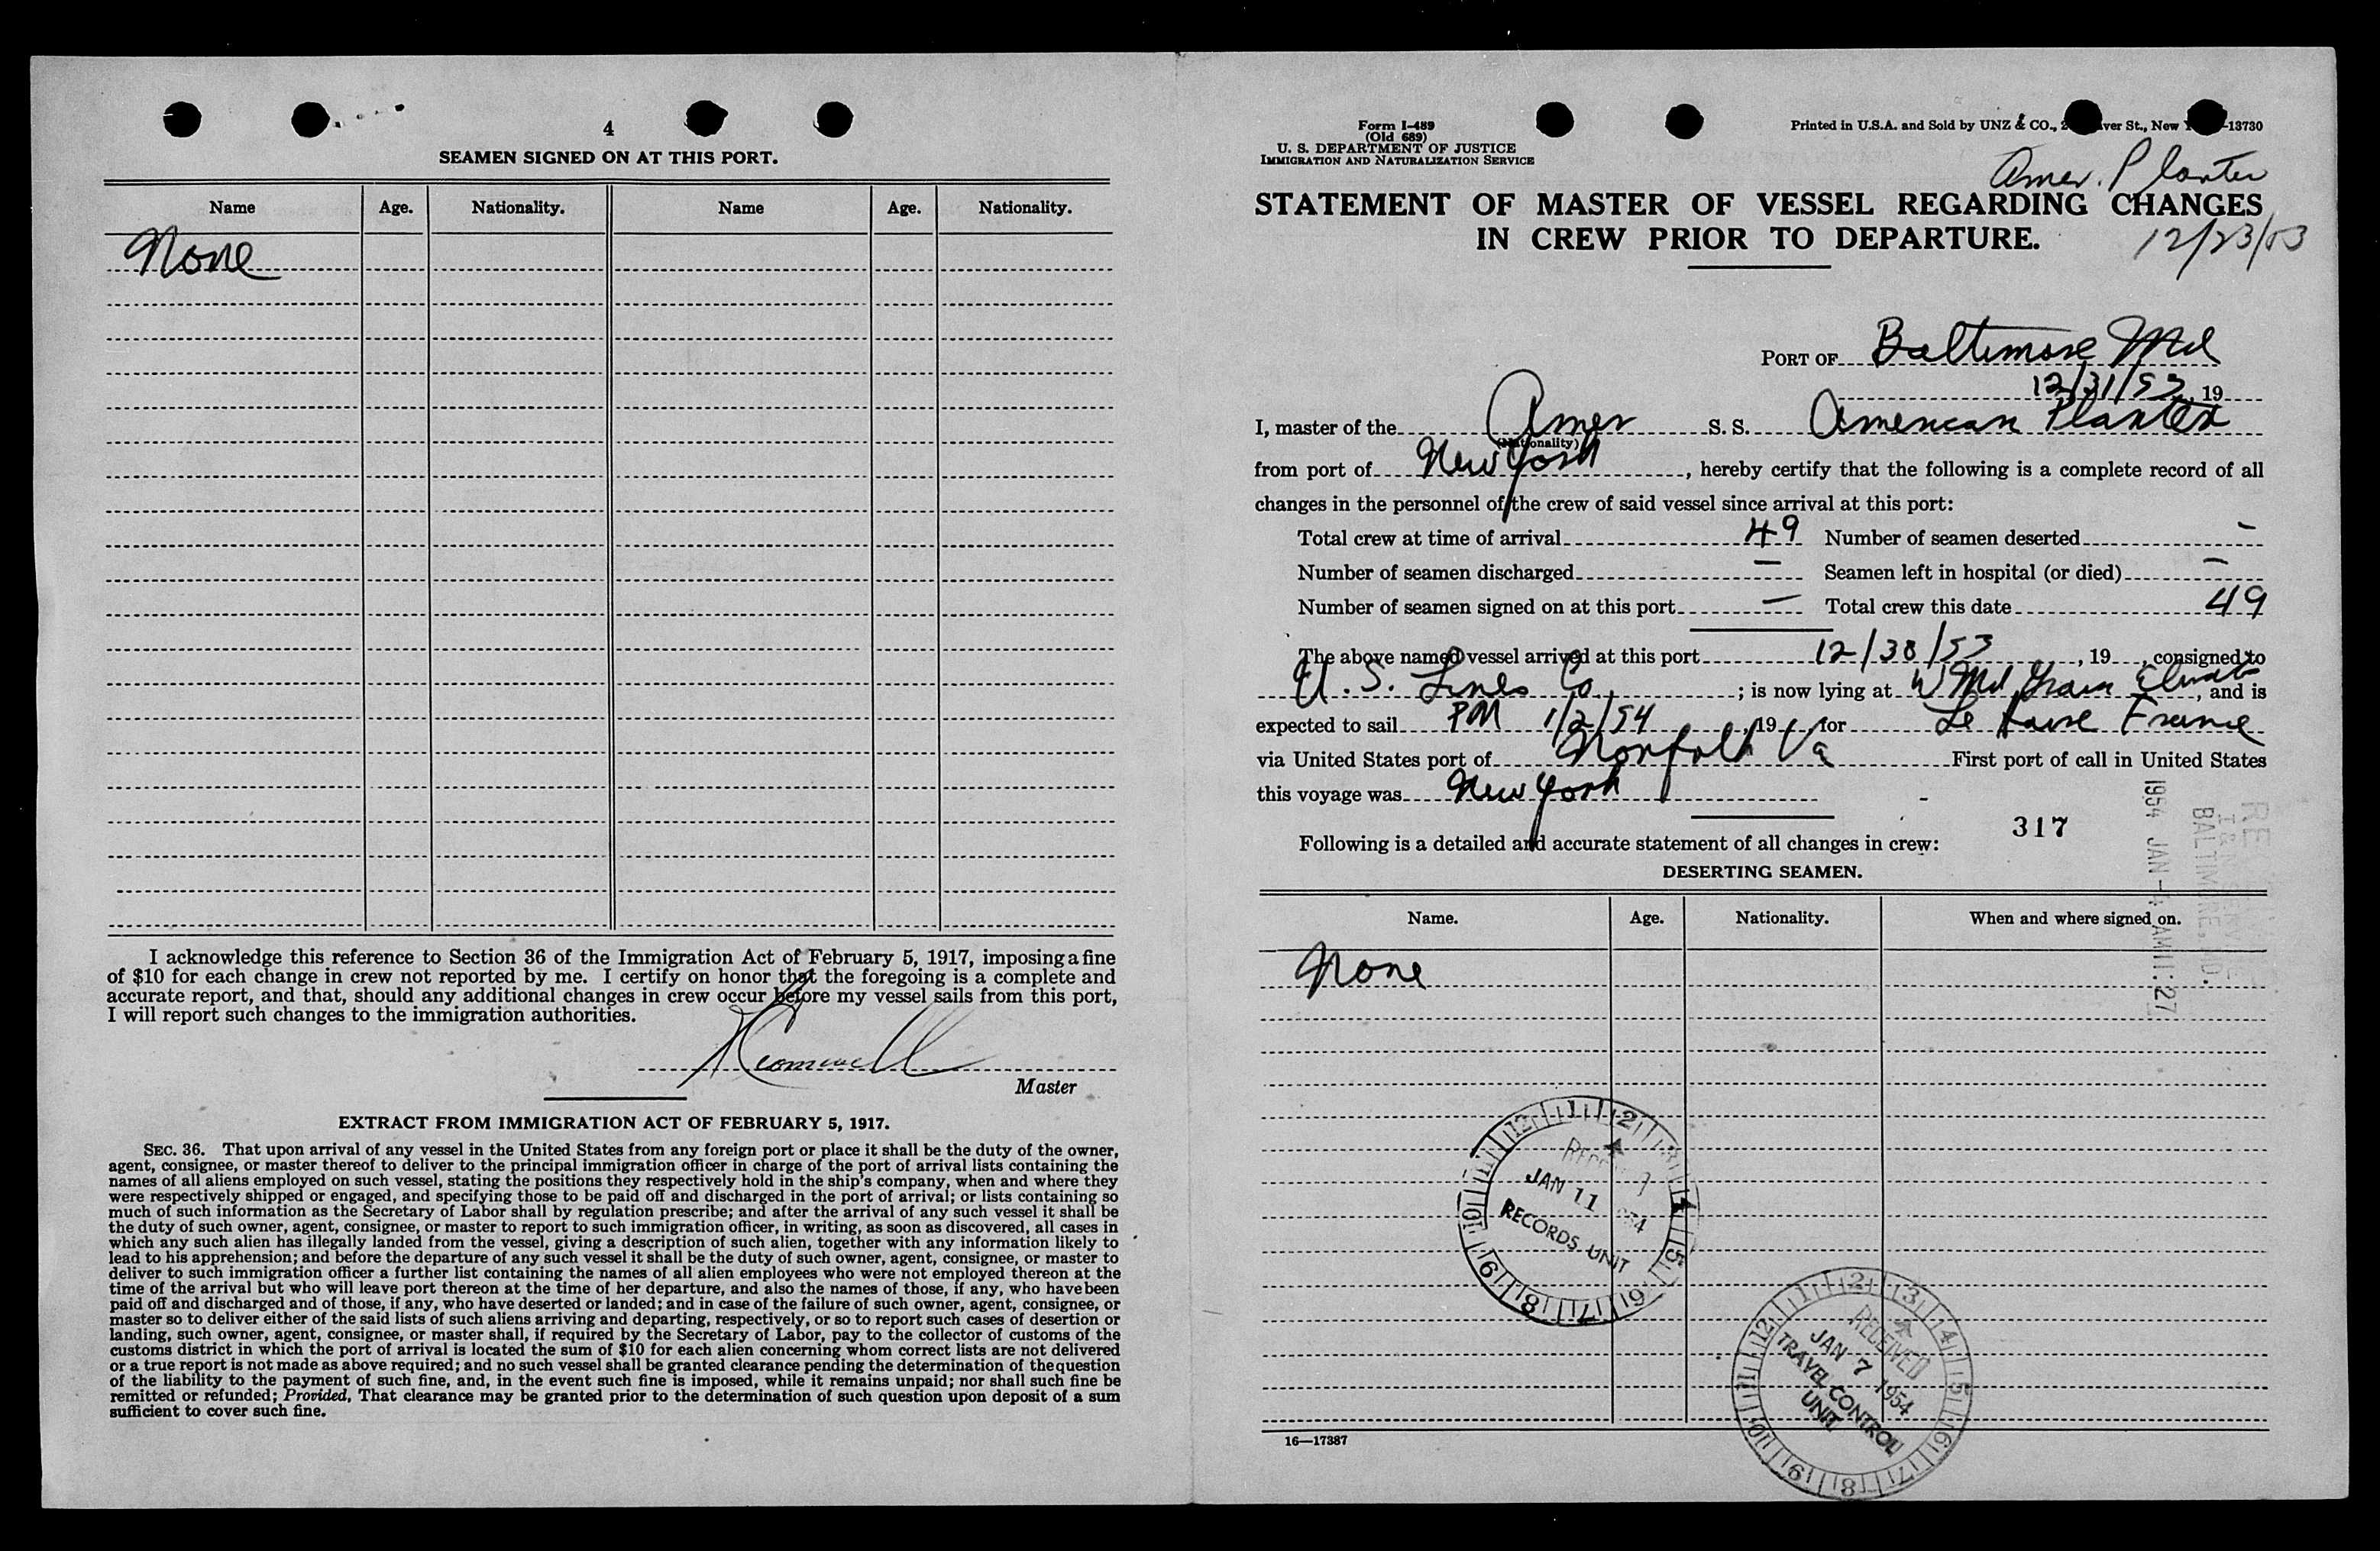 4
SEAMEN SIGNED ON AT THIS PORT.
Name Age. Nationality. Name Age. Nationality.
None
I acknowledge this reference to Section 36 of the Immigration Act of February 5, 1917, imposing a fine
of $10 for each change in crew not reported by me. I certify on honor that the foregoing is a complete and
accurate report, and that, should any additional changes in crew occur before my vessel sails from this port,
I will report such changes to the immigration authorities.
Master
EXTRACT FROM IMMIGRATION ACT OF FEBRUARY 5, 1917.
SEC. 36. That upon arrival of any vessel in the United States from any foreign port or place it shall be the duty of the owner,
agent, consignee, or master thereof to deliver to the principal immigration officer in charge of the port of arrival lists containing the
names of all aliens employed on such vessel, stating the positions they respectively hold in the ship's company, when and where they
were respectively shipped or engaged, and specifying those to be paid off and discharged in the port of arrival; or lists containing so
much of such information as the Secretary of Labor shall by regulation prescribe; and after the arrival of any such vessel it shall be
the duty of such owner, agent, consignee, or master to report to such immigration officer, in writing, as soon as discovered, all cases in
which any such alien has illegally landed from the vessel, giving a description of such alien, together with any information likely to
lead to his apprehension; and before the departure of any such vessel it shall be the duty of such owner, agent, consignee, or master to
deliver to such immigration officer a further list containing the names of all alien employees who were not employed thereon at the
time of the arrival but who will leave port thereon at the time of her departure, and also the names of those, if any, who have been
paid off and discharged and of those, if any, who have deserted or landed; and in case of the failure of such owner, agent, consignee, or
master so to deliver either of the said lists of such aliens arriving and departing, respectively, or so to report such cases of desertion or
landing, such owner, agent, consignee, or master shall, if required by the Secretary of Labor, pay to the collector of customs of the
customs district in which the port of arrival is located the sum of $10 for each alien concerning whom correct lists are not delivered
or a true report is not made as above required; and no such vessel shall be granted clearance pending the determination of the question
of the liability to the payment of such fine, and, in the event such fine is imposed, while it remains unpaid; nor shall such fine be
remitted or refunded; Provided, That clearance may be granted prior to the determination of such question upon deposit of a sum
sufficient to cover such fine.
Form I-489
(Old 689)
U. S. DEPARTMENT OF JUSTICE
IMMIGRATION AND NATURALIZATION SERVICE
Printed in U.S.A. and Sold by UNZ & CO., St., New -13730
Amer. Planter
STATEMENT OF MASTER OF VESSEL REGARDING CHANGES
IN CREW PRIOR TO DEPARTURE.
12/23/53
PORT OF Baltimore Md
12/31/53, 19
I, master of the Amer S. S. American Planter
(Nationality)
from port of New York, hereby certify that the following is a complete record of all
changes in the personnel of the crew of said vessel since arrival at this port:
Total crew at time of arrival 49 Number of seamen deserted -
Number of seamen discharged - Seamen left in hospital (or died) -
Number of seamen signed on at this port - Total crew this date 49
The above named vessel arrived at this port 12/30/53, 19, consigned to
U. S. Lines Co.; is now lying at W Md Grain, and is
expected to sail PM 1/2/54, 19 for Le Havre France
via United States port of Norfolk Va First port of call in United States
this voyage was New York
317
Following is a detailed and accurate statement of all changes in crew:
DESERTING SEAMEN.
Name. Age. Nationality. When and where signed on.
None
1954 JAN -4 AM 11:27
BALTIMORE, MD.
RECEIVED
JAN 11 1954
RECORDS UNIT
RECEIVED
JAN 7 1954
TRAVEL CONTROL
UNIT
16—17387